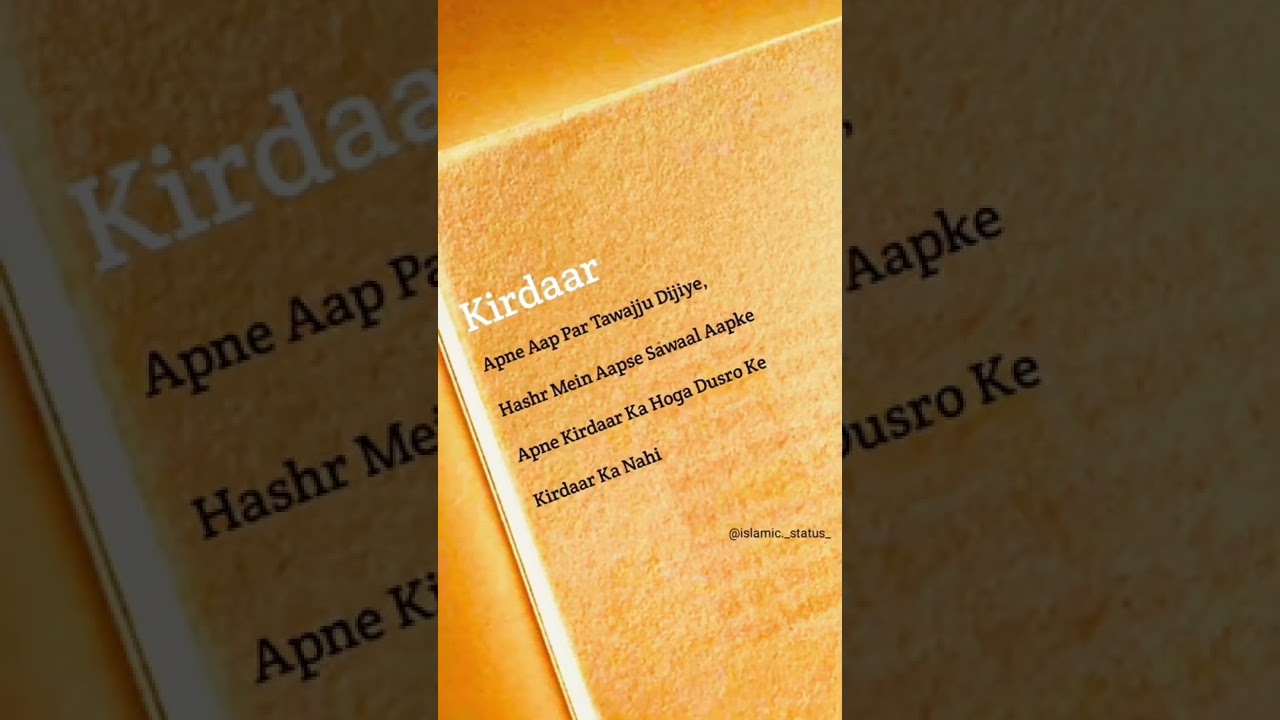 Kirdaar
Apne Aap Par Tawajju Dijiye,
Hashr Mein Aapse Sawaal Aapke
Apne Kirdaar Ka Hoga Dusro Ke
Kirdaar Ka Nahi
@islamic._status_